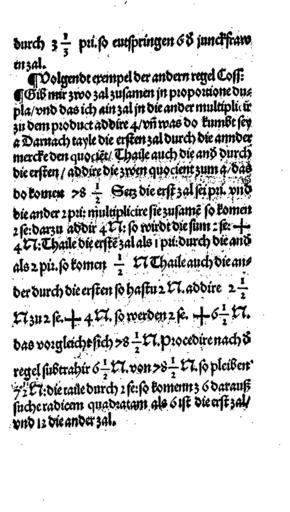 durch 3 1/3 pri. so entspringen 6 der junckfraw
en zal.
¶ Volgendt exempel der andern regel Coss:
¶ Gib mir zwo zal zusamen in proportione du-
pla/vnd das ich ain zal in die ander multiplicir
zu dem product addire 4/vñ was do kumbt sey
a Darnach tayle die ersten zal durch die annder
mercke den quociẽt/Thaile auch die and̃ durch
die ersten/addire die zwen quocient zum a/das
do komen 78 1/2 Setz die erst zal sei pri. vnd
die ander 2 pri: multiplicire sie zusamẽ so komen
2 se: darzu addir 4 N: so wirdt die sum 2 se: +
4 N: Thaile die erstẽ zal als 1 pri: durch die and
als 2 pri. so komen 1/2 N Thaile auch die an-
der durch die ersten so hastu 2 N. addire 2 1/2
N zu 2 se. + 4 N. so werden 2 se. + 6 1/2 N.
das vorgleicht sich 78 1/2 N. Procedire nach d̃
regel subtrahir 6 1/2 N. von 78 1/2 N. so pleiben
72 N: die taile durch 2 se: so komenn 36 darauß
suche radicem quadratam als 6 ist die erst zal/
vnd 12 die ander zal.